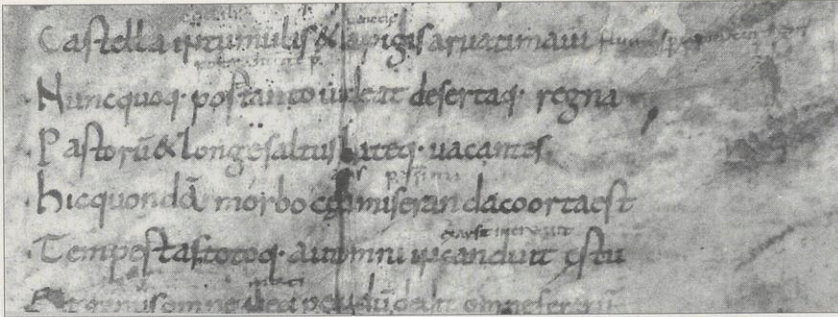 Castella intumulis & iapigis aruatimaui
Nuncquoq· posttanto uideat desertaq· regna
Pastorū & longe saltus lateq· uacantes
pessimi
hicquondā morbo cęli miserandacoortaest
exarsit increuit
Tempestastotoq· autumni incanduit ęstu
morti
Et genus omne neci pecudū dedit omneferarū